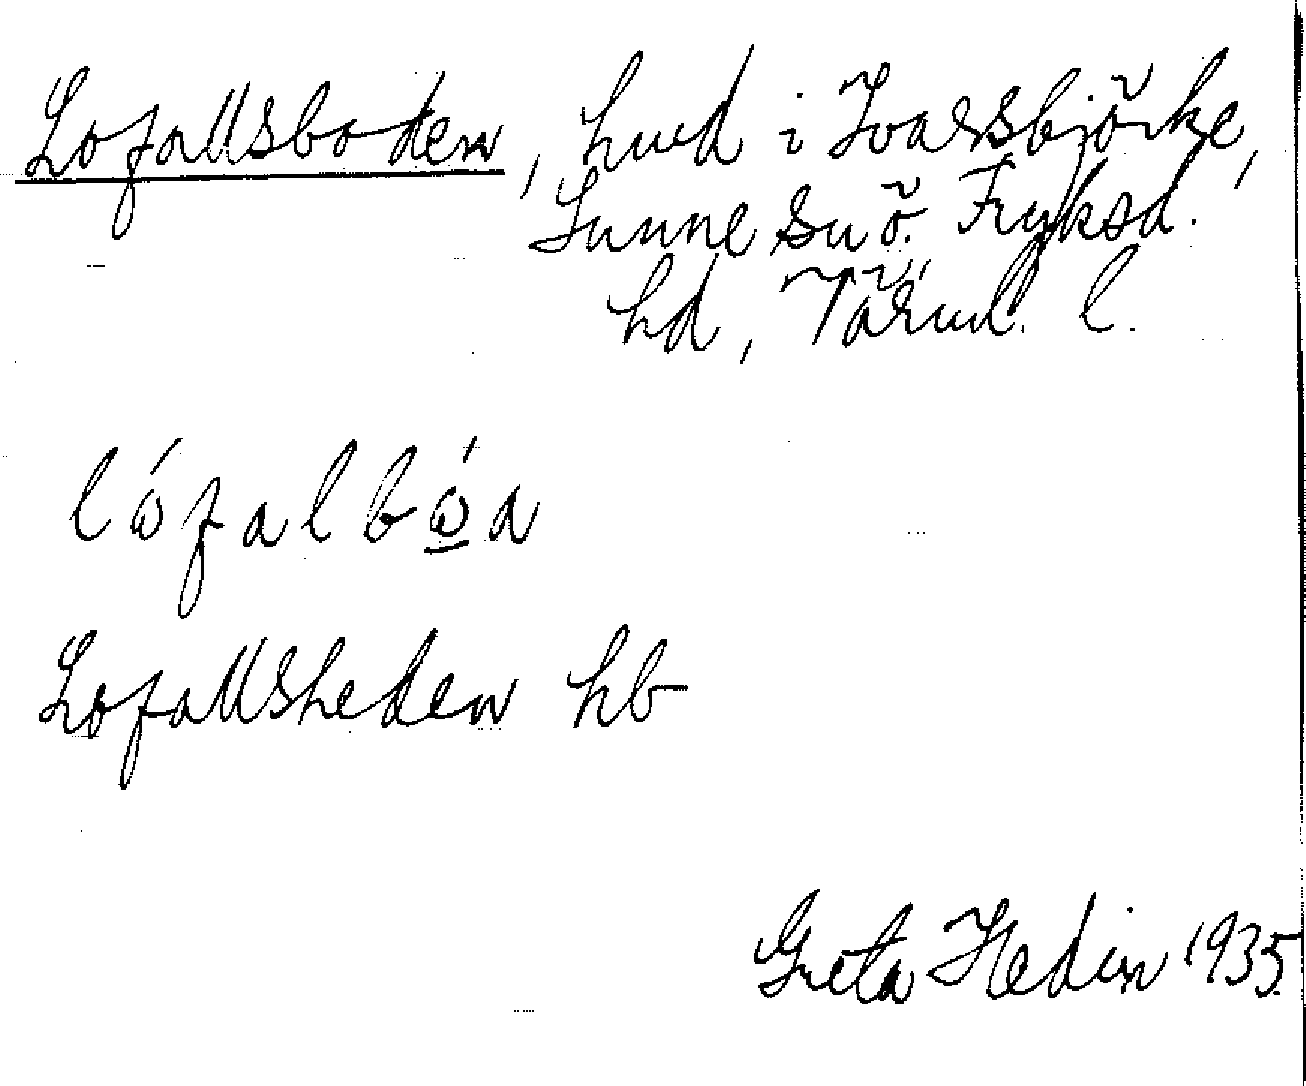 Lofallsboden, hmd i Ivarsbjörke,
Sunne sn ö. Fryksd.
hd, Värml. l.
lófalbóa
Lofallsheden hb
Greta Hedin 1935